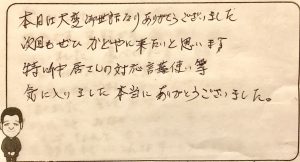 本日は大変御世話なりありがとうございました
次回もぜひ かどやに来たいと思います
特に中居さんの対応言葉使い等
気に入りました 本当に ありがとうございました。